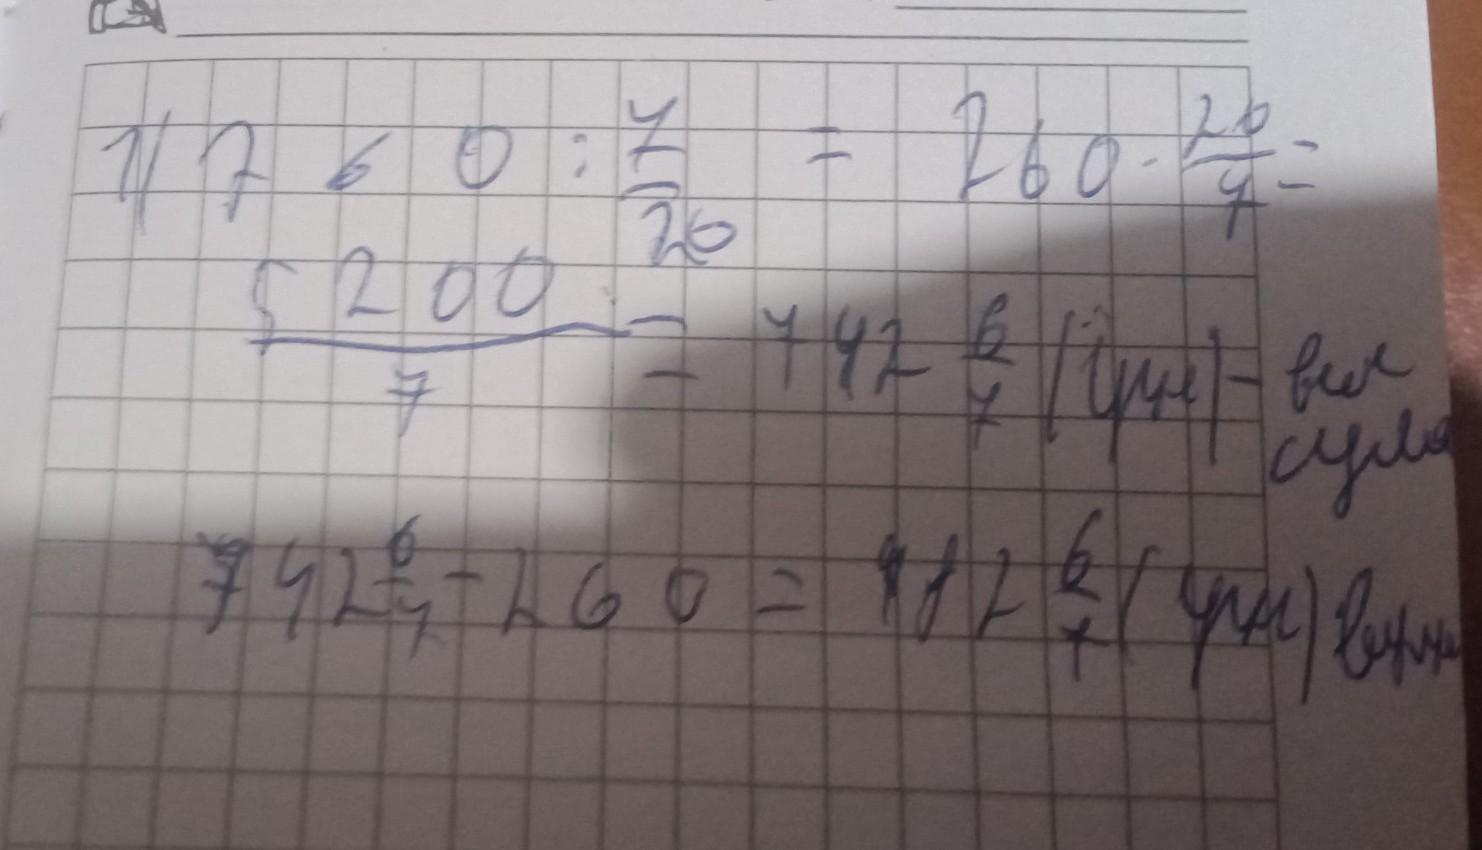 1) 760 : 7/20 = 260 · 20/7 =
5200/7 = 742 6/7 (грн) - вся
сума
742 6/7 - 260 = 482 6/7 (грн)